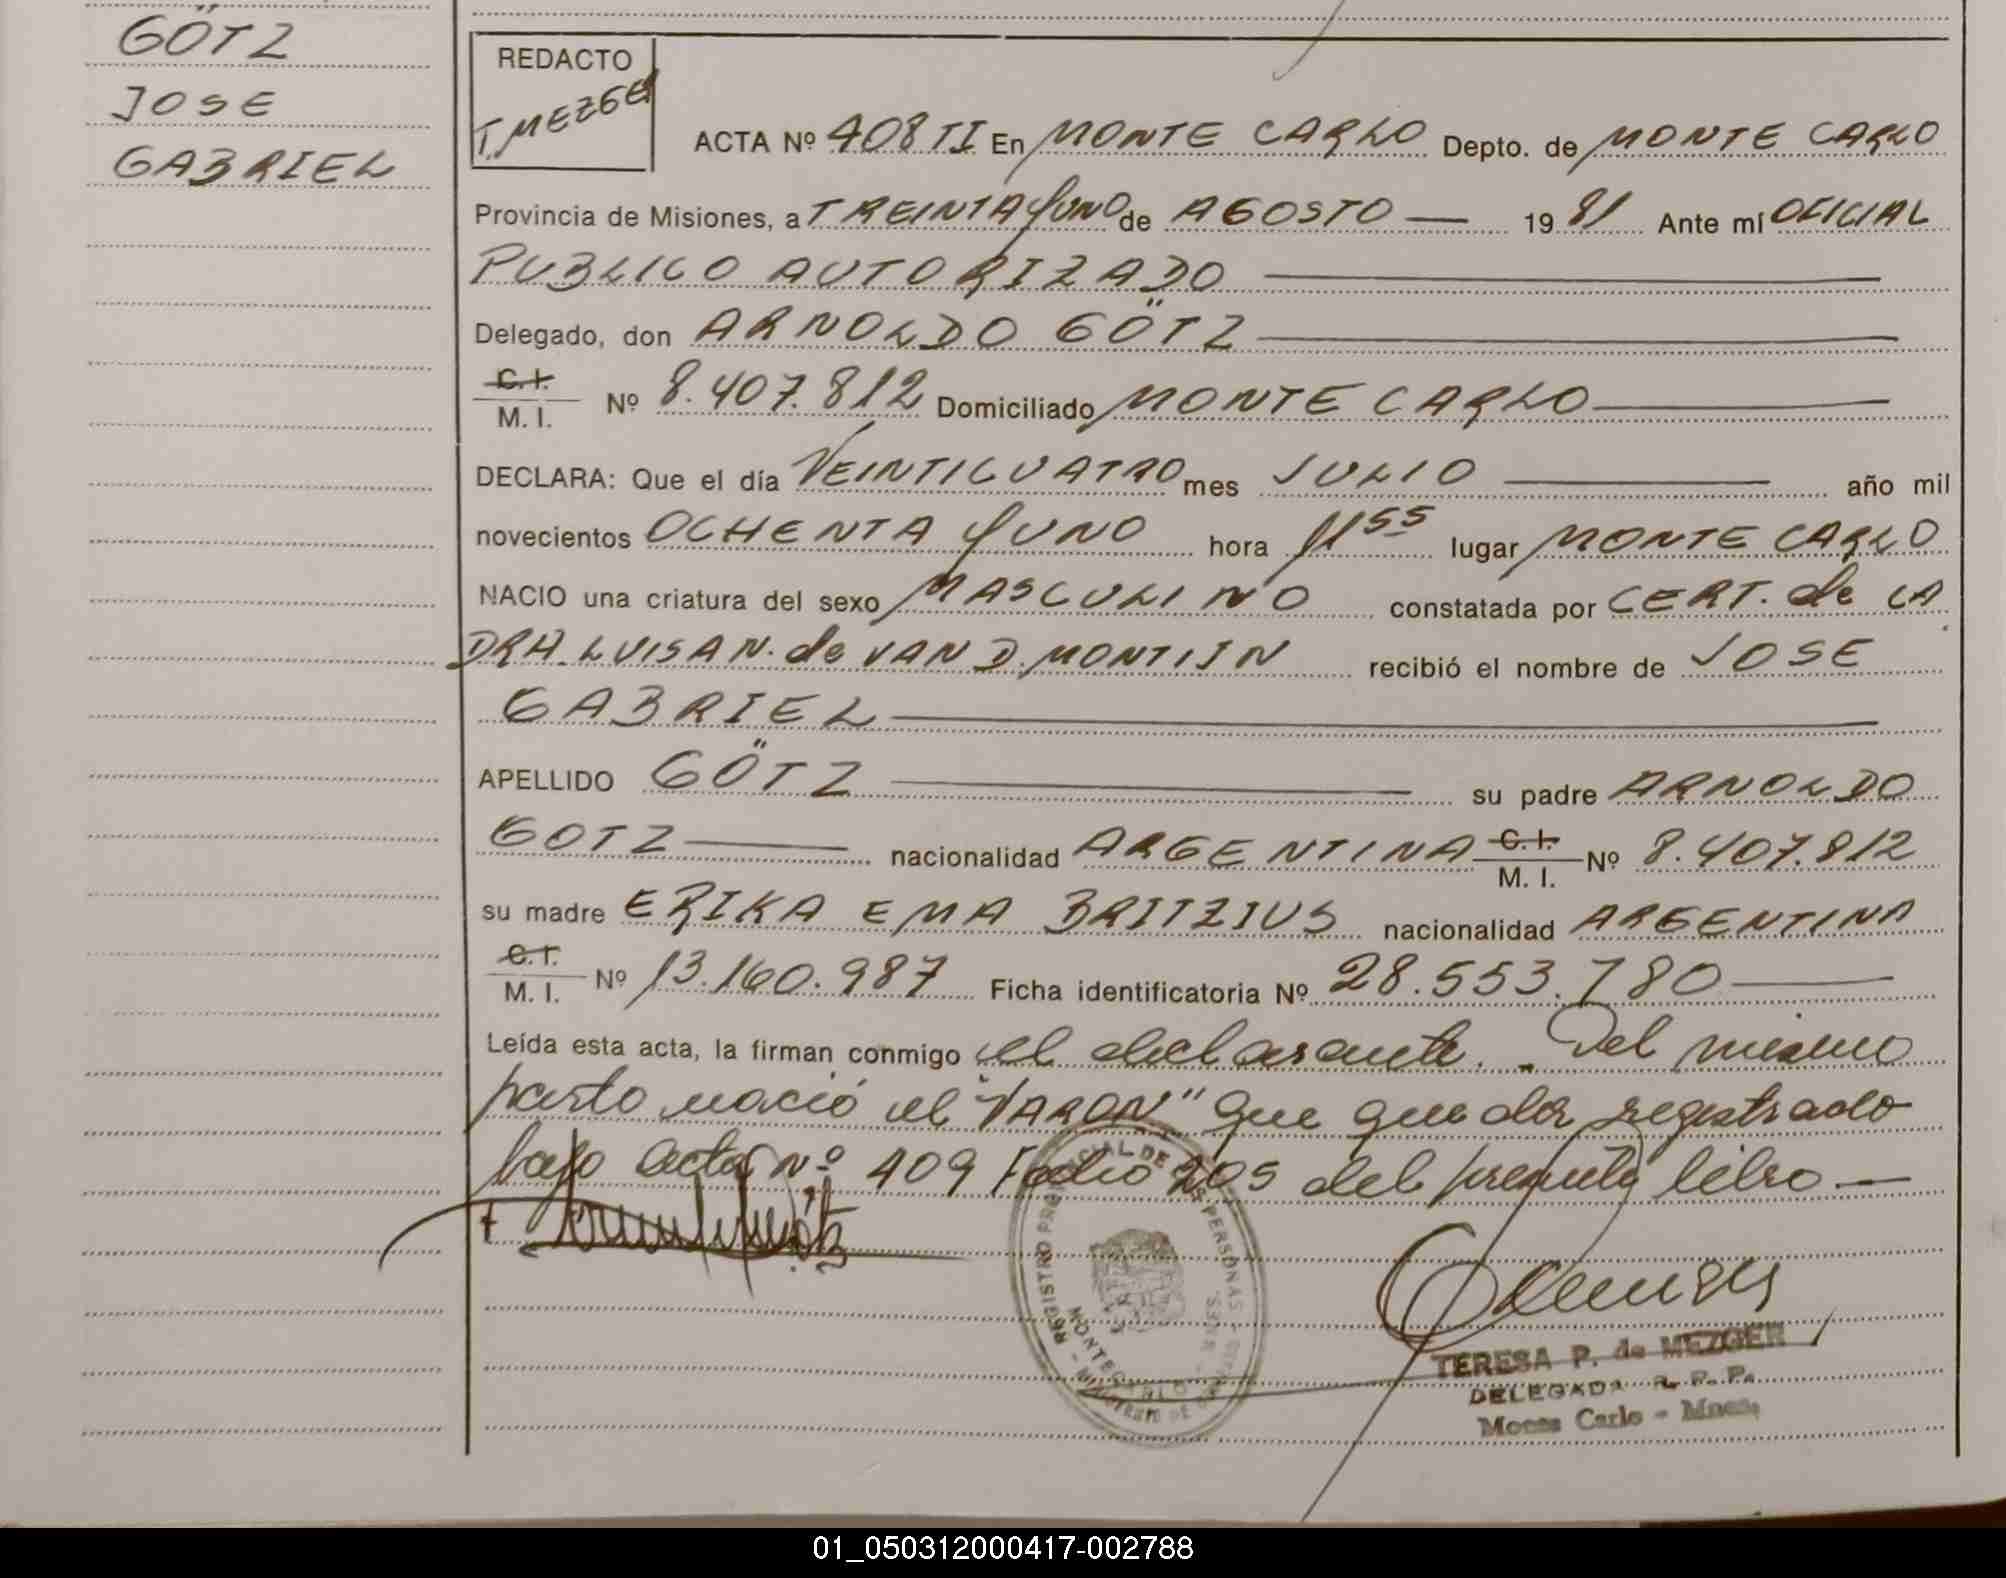 GÖTZ
JOSE
GABRIEL
REDACTO
T. MEZGER
ACTA Nº 408 TI En MONTE CARLO Depto. de MONTE CARLO
Provincia de Misiones, a TREINTA Y UNO de AGOSTO — 19 81 Ante mí OFICIAL
PUBLICO AUTORIZADO
Delegado, don ARNOLDO GÖTZ
C.I.
M. I. Nº 8.407.812 Domiciliado MONTE CARLO
DECLARA: Que el día VEINTICUATRO mes JULIO año mil
novecientos OCHENTA Y UNO hora 11 55 lugar MONTE CARLO
NACIO una criatura del sexo MASCULINO constatada por CERT. de LA
DRA. LUISA N. de VAN D. MONTIIN recibió el nombre de JOSE
GABRIEL
APELLIDO GÖTZ su padre ARNOLDO
GOTZ nacionalidad ARGENTINA C.I. M. I. Nº 8.407.812
su madre ERIKA EMA BRITZIUS nacionalidad ARGENTINA
C.I.
M. I. Nº 13.160.987 Ficha identificatoria Nº 28.553.780
Leída esta acta, la firman conmigo el declarante. - Del mismo
parto nació el "VARON" que queda registrado
bajo acta Nº 409 Folio 205 del presente libro —
REGISTRO PROVINCIAL DE LAS PERSONAS
MONTECARLO
TERESA P. de MEZGER
DELEGADA R. P. P.
Montecarlo - Mnes.
01_050312000417-002788